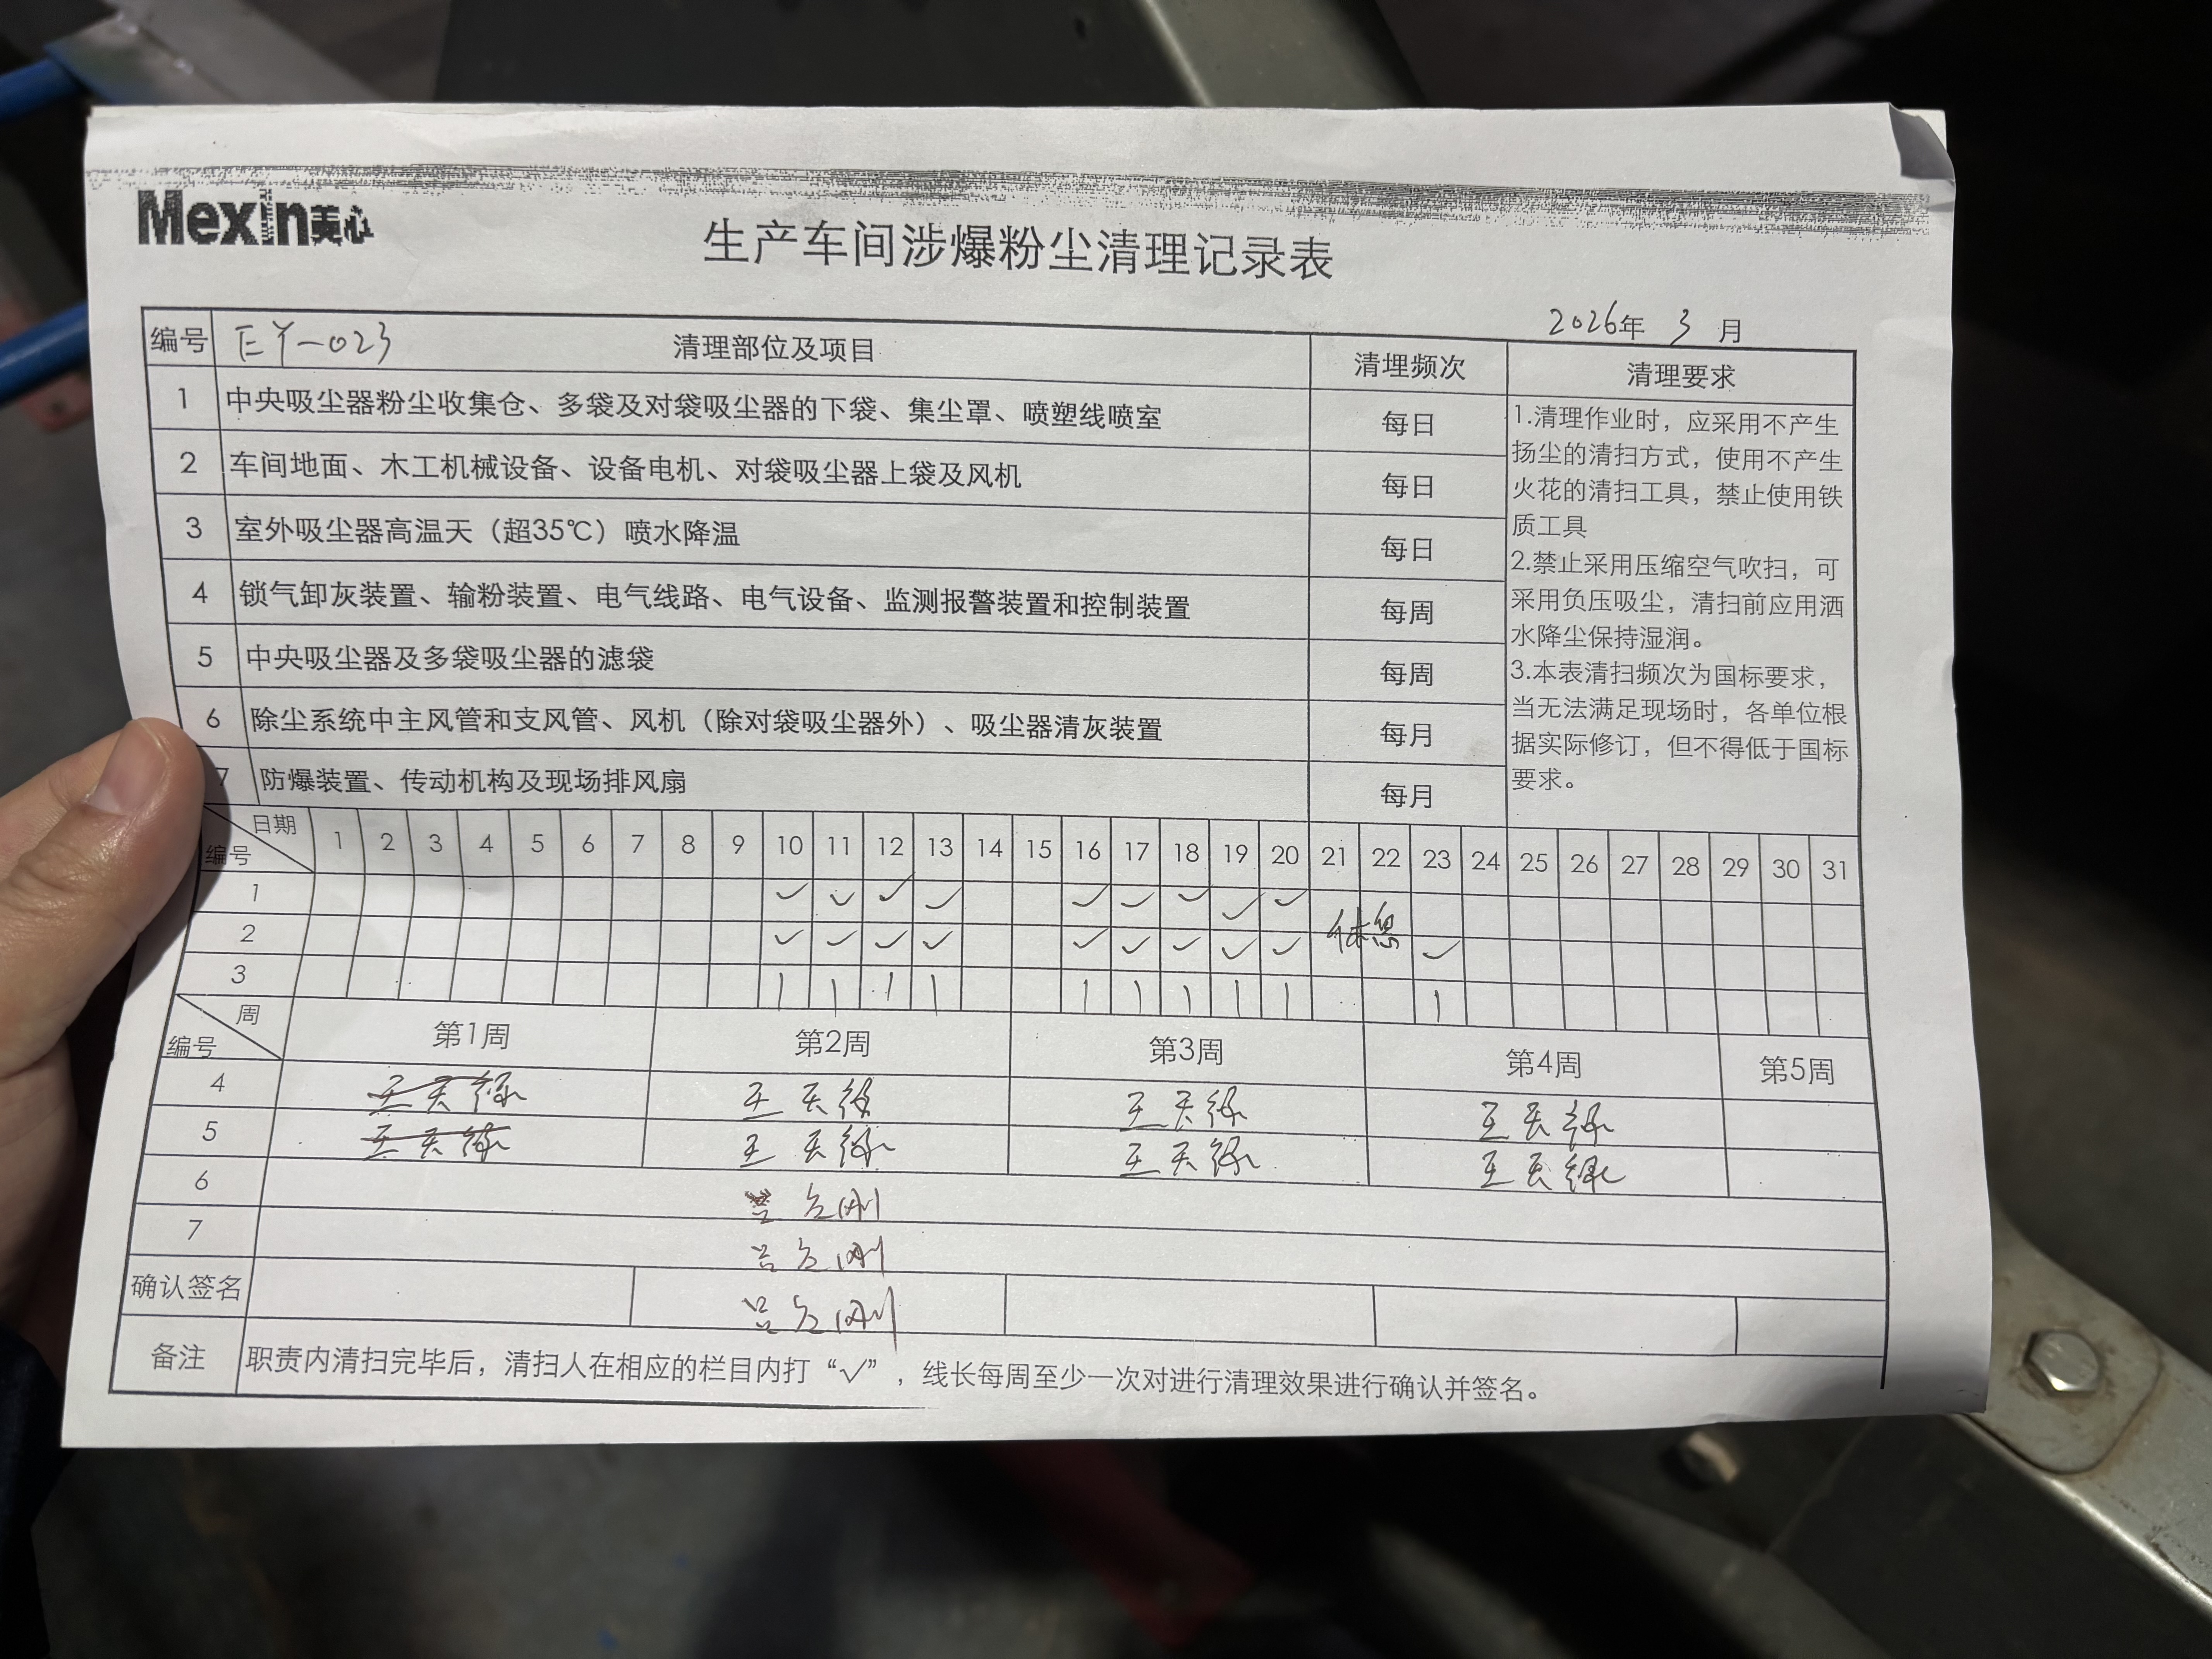 Mexin美心
生产车间涉爆粉尘清理记录表
2026年 3月
编号 EY-023 清理部位及项目 清理频次 清理要求
1 中央吸尘器粉尘收集仓、多袋及对袋吸尘器的下袋、集尘罩、喷塑线喷室 每日
2 车间地面、木工机械设备、设备电机、对袋吸尘器上袋及风机 每日
3 室外吸尘器高温天（超35℃）喷水降温 每日
4 锁气卸灰装置、输粉装置、电气线路、电气设备、监测报警装置和控制装置 每周
5 中央吸尘器及多袋吸尘器的滤袋 每周
6 除尘系统中主风管和支风管、风机（除对袋吸尘器外）、吸尘器清灰装置 每月
7 防爆装置、传动机构及现场排风扇 每月
1.清理作业时，应采用不产生
扬尘的清扫方式，使用不产生
火花的清扫工具，禁止使用铁
质工具
2.禁止采用压缩空气吹扫，可
采用负压吸尘，清扫前应用洒
水降尘保持湿润。
3.本表清扫频次为国标要求，
当无法满足现场时，各单位根
据实际修订，但不得低于国标
要求。
日期 编号 1 2 3 4 5 6 7 8 9 10 11 12 13 14 15 16 17 18 19 20 21 22 23 24 25 26 27 28 29 30 31
1 ✓ ✓ ✓ ✓ ✓ ✓ ✓ ✓ ✓
休息
2 ✓ ✓ ✓ ✓ ✓ ✓ ✓ ✓ ✓ ✓
3 | | | | | | | | | |
周 编号 第1周 第2周 第3周 第4周 第5周
4
5
6
7
确认签名
备注 职责内清扫完毕后，清扫人在相应的栏目内打“√”，线长每周至少一次对进行清理效果进行确认并签名。